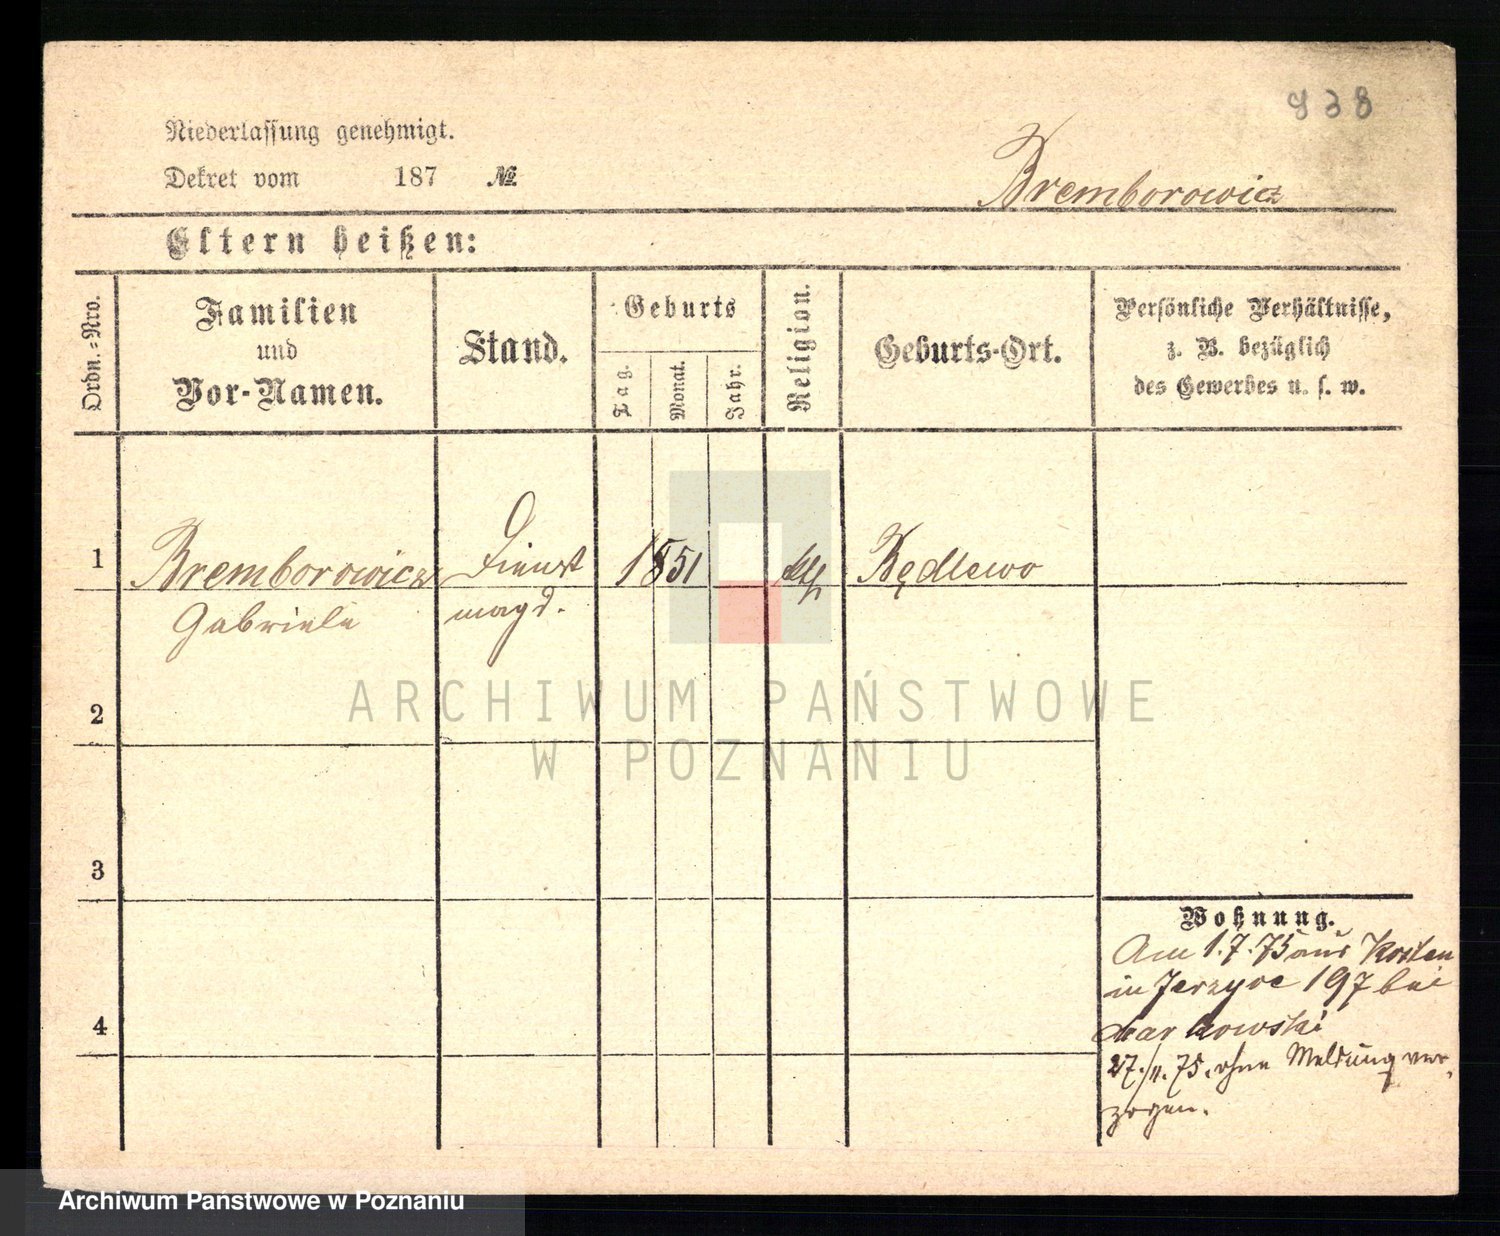 938
Niederlassung genehmigt.
Dekret vom 187 №
Bremborowicz
Eltern heißen:
Ordn.-Nro.
Familien
und
Vor-Namen.
Stand.
Geburts
Tag.
Monat.
Jahr.
Religion.
Geburts-Ort.
Persönliche Verhältnisse,
z. B. bezüglich
des Gewerbes u. s. w.
1
Bremborowicz
Gabriele
Dienst
magd.
1851
kth
Będlewo
2
3
4
Wohnung.
Am 1.7.75 aus Kosten
in Jerzyce 197 bei
Markowski
27./11.75. ohne Meldung ver-
zogen.
ARCHIWUM PAŃSTWOWE
W POZNANIU
Archiwum Państwowe w Poznaniu